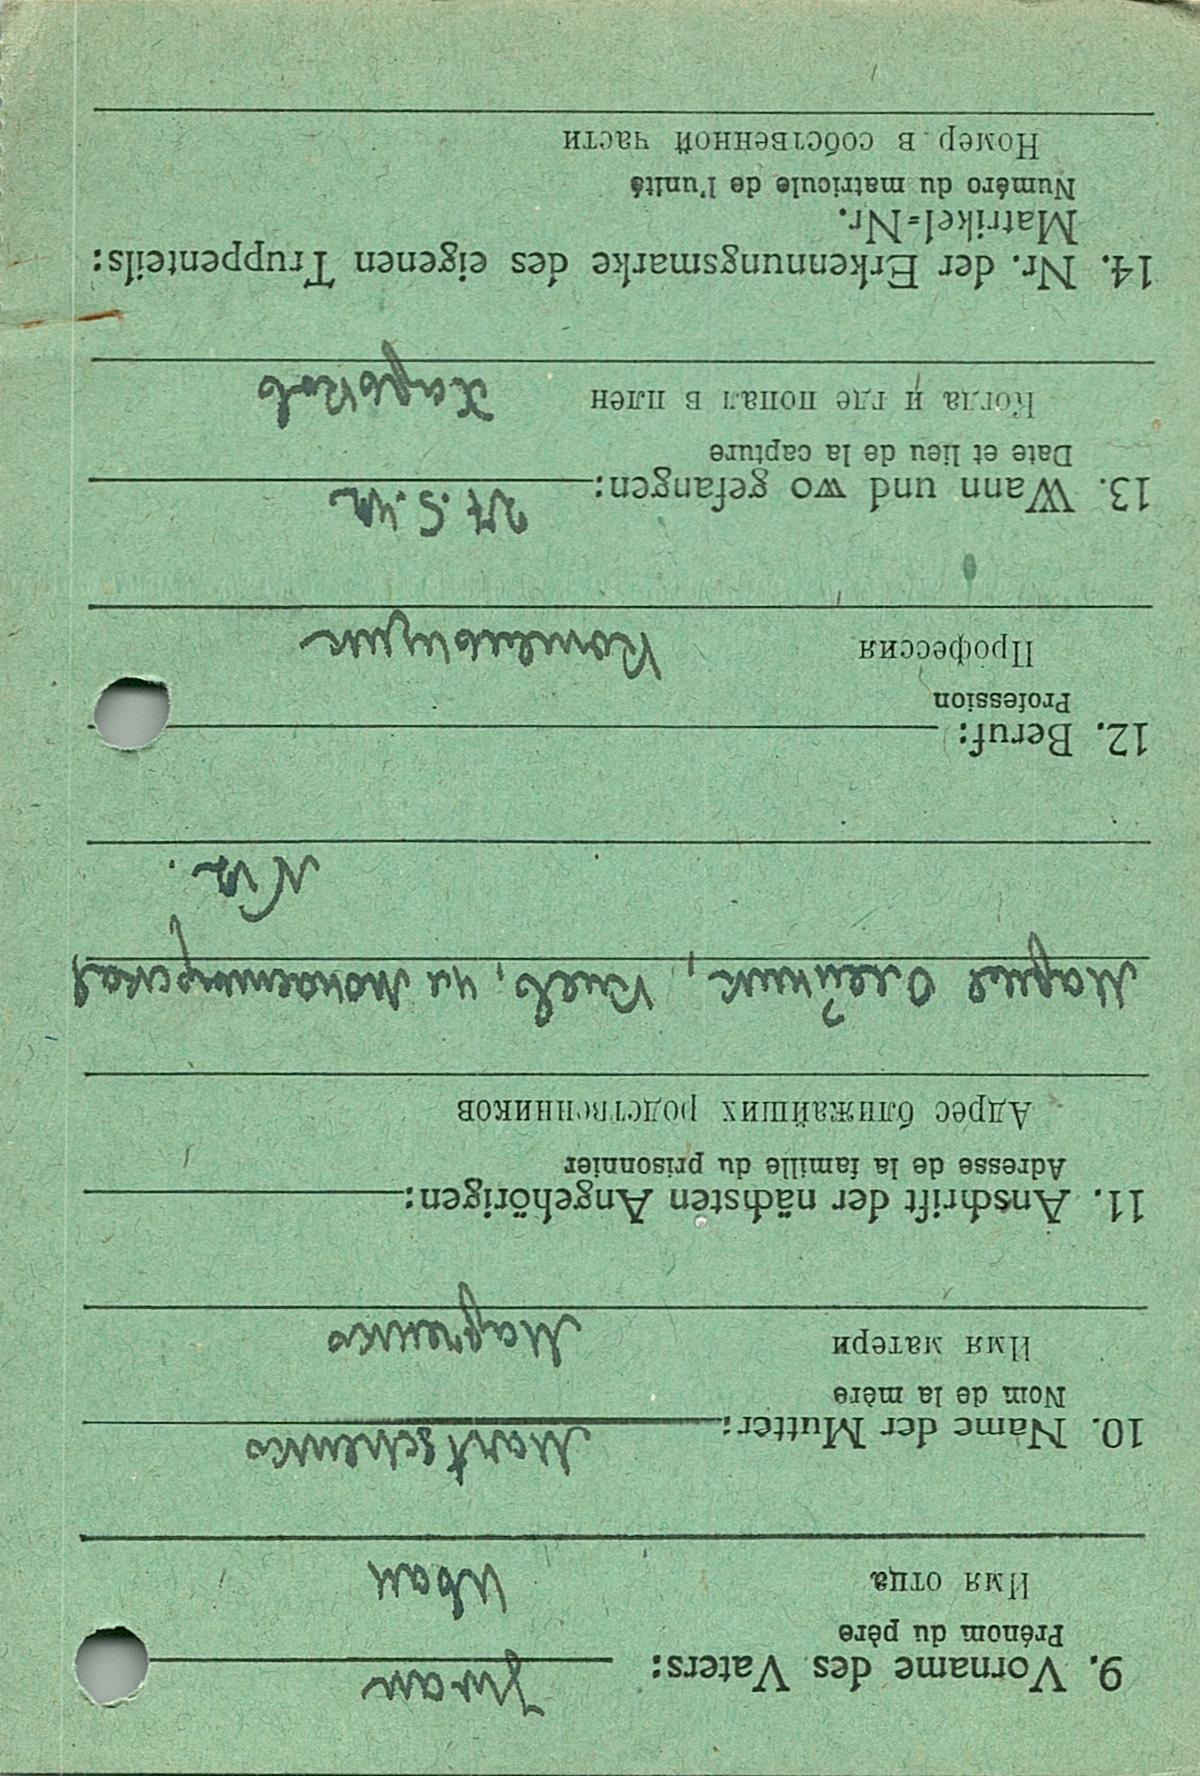 9. Vorname des Vaters: Iwan
Prénom du père
Имя отца Иван
10. Name der Mutter: Martschenko
Nom de la mère
Имя матери Марченко
11. Anschrift der nächsten Angehörigen:
Adresse de la famille du prisonnier
Адрес ближайших родственников
Мария Олейник, Киев, ул Монастырская
N 12.
12. Beruf:
Profession
Профессия Котельщик
13. Wann und wo gefangen: 27.5.42
Date et lieu de la capture
Когда и где попал в плен Харьков
14. Nr. der Erkennungsmarke des eigenen Truppenteils:
Matrikel=Nr.
Numéro du matricule de l'unité
Номер в собственной части